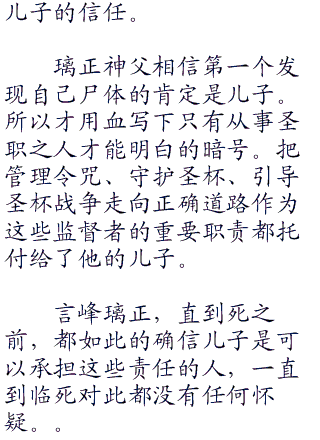 儿子的信任。
璃正神父相信第一个发
现自己尸体的肯定是儿子。
所以才用血写下只有从事圣
职之人才能明白的暗号。把
管理令咒、守护圣杯、引导
圣杯战争走向正确道路作为
这些监督者的重要职责都托
付给了他的儿子。
言峰璃正，直到死之
前，都如此的确信儿子是可
以承担这些责任的人，一直
到临死对此都没有任何怀
疑。。